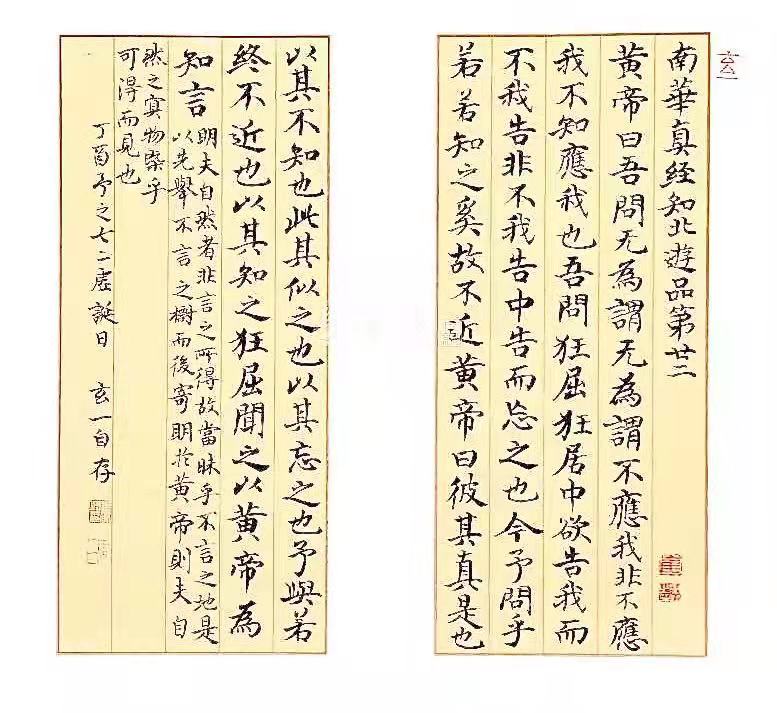 玄一
南華真経知北遊品第廿二
黄帝曰吾問无為謂无為謂不應我非不應
我不知應我也吾問狂屈狂居中欲告我而
不我告非不我告中告而忘之也今予問乎
若若知之奚故不近黄帝曰彼其真是也
以其不知也此其似之也以其忘之也予與若
終不近也以其知之狂屈聞之以黄帝為
知言
明夫自然者非言之所得故當昧乎不言之地是
以先舉不言之而後寄明於黄帝則夫自
然之冥物槩乎
可得而見也
丁酉予之七二虛誕日 玄一自存